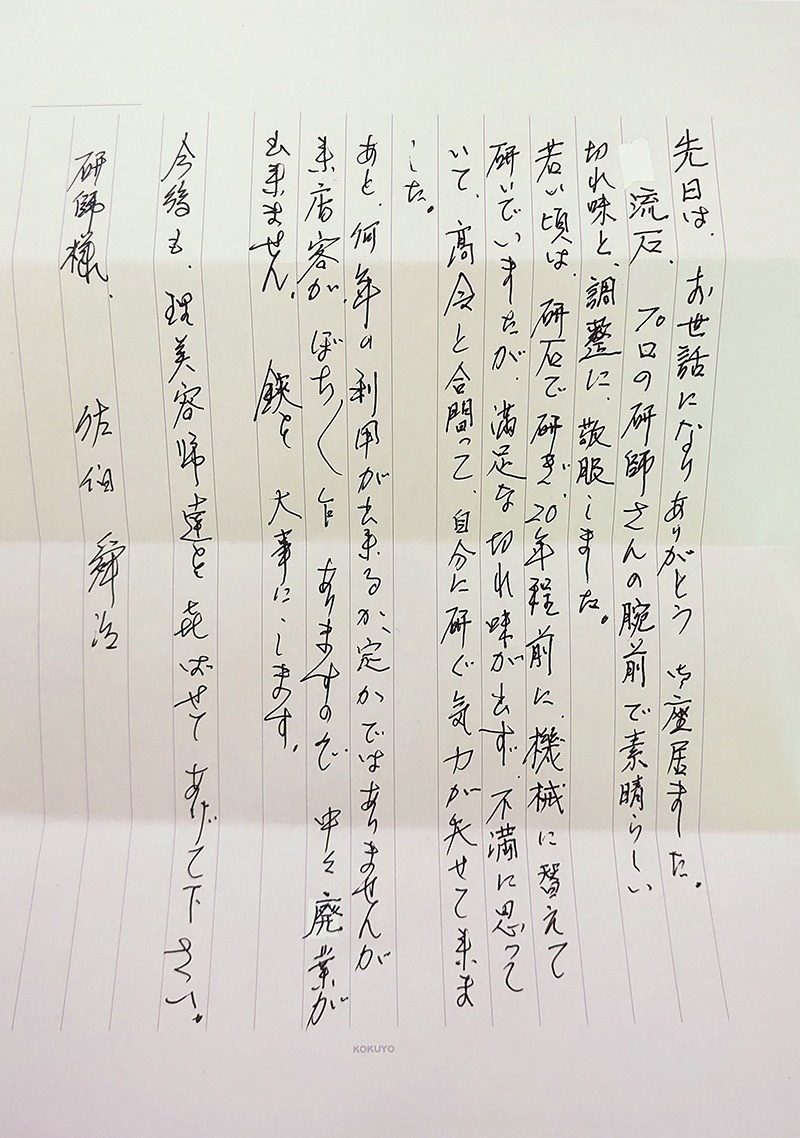 先日は、お世話になりありがとう御座居ました。
流石、プロの研師さんの腕前で素晴らしい
切れ味と、調整に、敬服しました。
若い頃は、研石で研ぎ、20年程前に、機械に替えて
研いでいましたが、満足な切れ味が出ず、不満に思って
いて、高令と合間って、自分に研ぐ気力が失せて来ま
した。
あと、何年の利用が出来るか、定かではありませんが
来店客が、ぼち〳〵 ありますので、中々廃業が
出来ません。 鋏を大事にします。
今後も、理美容師達を喜ばせてあげて下さい。
研師様、 佐伯 舜治
KOKUYO